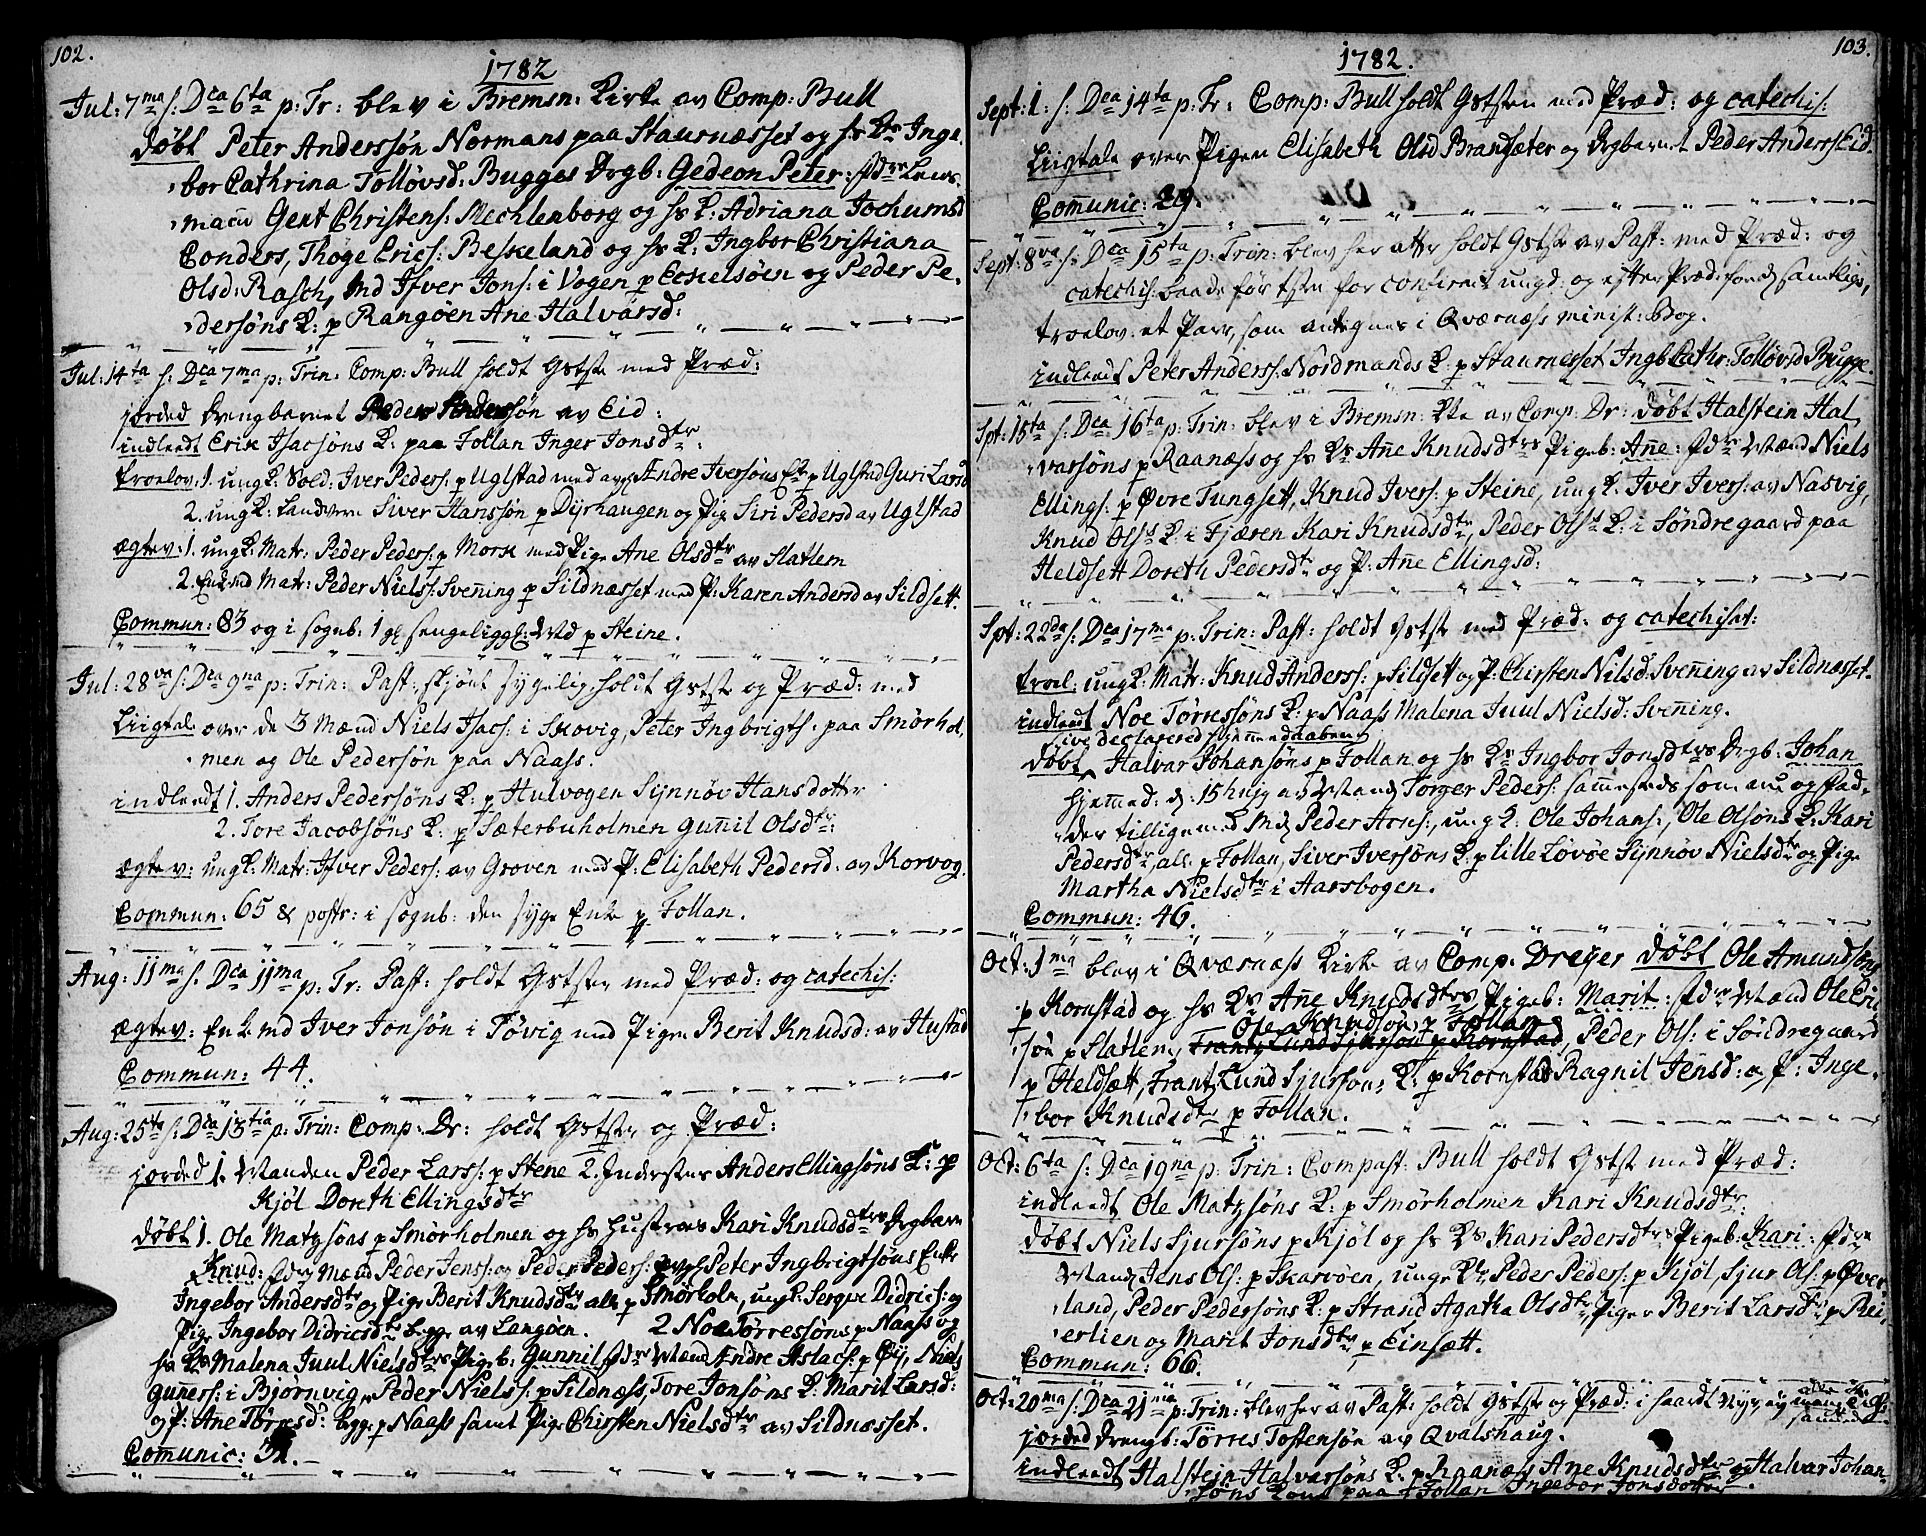 102.
1782
Jul: 7ma s: Dca 6ta p: Tr: blev i Bremsn: Kirke av Comp: Bull
døbt Peter Anderssøn Normans paa Staurnæsset og hs Ks Inge,
bor Cathrina Tolløvsd: Bugges Drgb: Gedeon Peter: fdre Lens,
mand Gert Christens: Mechlenborg og hs K: Adriana Jochumsd
Conders, Thøge Erics: Beskeland og hs K: Ingbor Christiana
Olsd: Rasch, Md Ifver Jons: i Vogen p Eckelsøen og Peder Pe,
dersøns K: p Rangøen Ane Halvarsd:
Jul: 14ta s: Dca 7ma p: Trin: Comp: Bull holdt Gstste med Præd:
jorded Drengbarnet Peder Andersøn av Eid:
indleedt Erik Isacsøns K: paa Follan Inger Jonsdtr:
troelov: 1. ungk: Sold: Iver Peders: p Uglstad med avg Andre Iversøns Ek p Uglstad Guri Larsd
2. ungk: Landvern Siver Hanssøn p Dyrhaugen og Pig: Siri Pedersd av Uglstad
ægtev: 1. ungk: Matr: Peder Peders: p Morsk med Pige Ane Olsdtr av Slatlem
2. Enkemd Matr: Peder Niels: Svening p Sildnæsset med P: Karen Andersd av Sildsett.
Commun: 83 og i sogneb: 1 gl sengeliggd: Md p Steine.
Jul: 28va s: Dca 9na p: Trin: Past: skjønt sygelig holdt Gstste og Præd: med
Liigtal: over de 3 Mænd Niels Isacs: i Skovig, Peter Ingbrigts: paa Smørhol,
men og Ole Pedersøn paa Naass.
indleedt 1. Anders Pedersøns K: p Hulvogen Synnøv Hansdotter
2. Tore Jacobsøns K: p Sæterbuholmen Gunnil Olsdtr:
ægtev: ungk: Matr: Ifver Peders: av Groven med P: Elisabeth Pedersd: av Korvog.
Commun: 65 & postr: i sogneb: den syge Enke p Follan.
Aug: 11ma s: Dca 11ma p: Tr: Past: holdt Gstste med Præd: og catechis:
ægtev: Enkemd Iver Jonsøn i Tøvig med Pigen Berit Knudsd: av Hustad
Commun: 44.
Aug: 25ta s: Dca 13tia p: Trin: Comp: Dr: holdt Gstste og Præd:
jorded 1. Manden Peder Lars: p Stene 2. Inderstens Anders Ellingsøns K: p
Kjøl Doreth Ellingsdtr
døbt 1. Ole Matzsøns p Smørholmen og hs hustrues Kari Knudsdtrs Drgbarn
Knud: fdre Mænd Peder Jens: og Peder Peders: avg Peter Ingbrigtsøns Enke
Ingebor Andersdtr og Pige Berit Knudsdtr alle p Smørholm, ungk: Serger Didrics: og
Pige Ingebor Didricsdtr begge av Langøen. 2 Noe Tørressøns p Naass og
hs Ks Malena Juul Nielsdtrs Pigeb: Gunnil, fdre Mænd Andre Aslacs: p Øy, Niels
Guners: i Bjørnvig, Peder Niels: p Sildnæss, Tore Jonsøns K: Marit Larsd:
og P: Ane Tørresd: begge p Naass samt Pige Chirsten Nielsdtr av Sildnæsset.
Comunic: 31.
103.
1782.
Sept: 1. s: Dca 14ta p: Tr: Comp: Bull holdt Gstste med Præd: og catechis:
Liigtale over Pigen Elisabeth Olsd Brandsæter og Drgbarnet Peder Anders: Eid.
Comunic: 29.
Sept: 8va s: Dca 15ta p: Trin: blev her atter holdt Gstste av Past: med Præd: og
catechis: baade før tsten for confirmt: ungd: og efter Præd: for samtlige,
troelov: et Par, som antegnes i Qværnæss minist: Bog.
indleedt Peter Anders: Nordmands K: p Staurnesset Ingb Cathr: Tolløvsd Bugge.
Spt: 15ta s: Dca 16ta p: Trin: blev i Bremsn: Kke av Comp: Dr: døbt Halstein Hal,
varsøns p Raanæss og hs Ks Ane Knudsdtrs Pigeb: Ane: fdre Mænd Niels
Ellings: p Øvre Tungsett, Knud Ivers: p Steine, ungk: Iver Ivers: av Nasvig,
Knud Ols: K: i Fjæren Kari Knudsdtr, Peder Ols: K: i Søndregaard paa
Heldsett Doreth Pedersdtr og P: Ane Ellingsd:
Spt: 22da s: Dca 17ma p: Trin: Past: holdt Gstste med Præd: og catechisat:
troel: ungk: Matr: Knud Anders: p Sildsett og P: Chirsten Nilsd: Svening av Sildnæsset.
indleedt Noe Tørressøns K: p Naass Malena Juul Nielsd: Svening.
sive declarered hiemmedaaben
døbt Halvar Johansøns p Follan og hs Ks Ingbor Jonsdtrs Drgb: Johan
hjemmed: d: 15 hujus Mand Torger Peders: sammesteds som nu og Fad,
der tilligemed Md Peder Arns:, ungk: Ole Johans:, Ole Olsøns K: Kari
Pedersdtr, alle p Follan, Siver Iversøns K: p Lille Løvøe Synnøv Nielsdtr og Pige
Martha Nielsdtr i Aarsbogen.
Commun: 46.
Oct: 1ma blev i Qværnæss Kirke av Comp: Dreyer døbt Ole Amundsøns
p Kornstad og hs Ks Ane Knudsdtrs Pigeb: Marit: fdre Mænd Ole Eric,
Ole Knudsøn p Follan
søn p Slatlem, Frantz Lund Sjursøn p Kornstad, Peder Ols: i Søndregaard
p Heldsætt, Frantz Lund Sjursøns K: p Kornstad Ragnil Jensd: og P: Inge,
bor Knudsdtr p Follan.
Oct: 6ta s: Dca 19na p: Trin: Compast: Bull holdt Gstste med Præd:
indleedt Ole Matzsøns K: p Smørholmen Kari Knudsdtr:
døbt Niels Sjursøns p Kjøl og hs Ks Kari Pedersdtrs Pigeb: Kari: fdre
Mand Jens Ols: p Skarvøen, unge Kr: Peder Peders: p Kjøl, Sjur Ols: p Øver,
land, Peder Pedersøns K: p Strand Agatha Olsdtr, Piger Berit Larsdtr p Rei,
erlien og Marit Jonsdtr p Einsætt.
Commun: 66.
Oct: 20ma s: Dca 21ma p: Trin: blev her av Past: holdt Gstste og Præd: i haardt Vejr, øy mange
jorded Drengb: Tørres Tostensøn av Qvalshaug.
indleedt Halstein Halvarsøns K: p Raanæss Ane Knudsdtr og Halvar Johan,
søns Kone paa Follan Ingebor Jonsdotter.